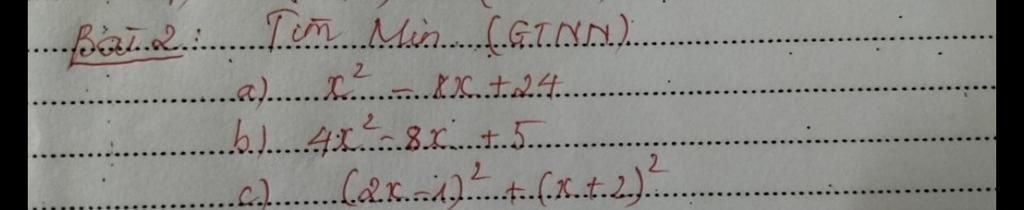 Bài 2: Tìm Min (GTNN)
a) x² - 8x + 24
b) 4x² - 8x + 5
c) (2x - 1)² + (x + 2)²